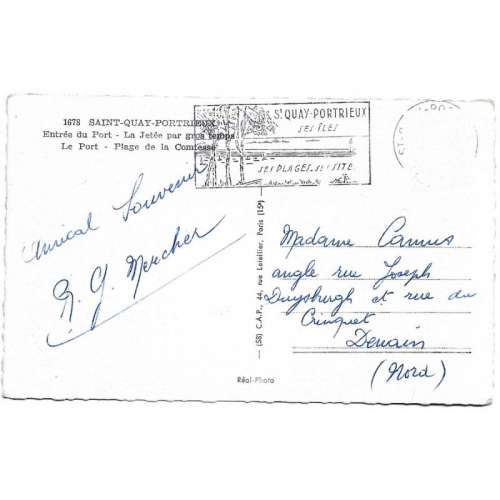 1678 SAINT-QUAY-PORTRIEUX
Entrée du Port - La Jetée par gros temps
Le Port - Plage de la Comtesse
St QUAY-PORTRIEUX
SES ÎLES
SES PLAGES. SES SITE
Amical Souvenir
Mercher
Madame Camus
angle rue Joseph
Duysburgh et rue du
Crinquet
Denain
(Nord)
(SB) C.A.P., 44, rue Letellier, Paris (15e)
Réal-Photo